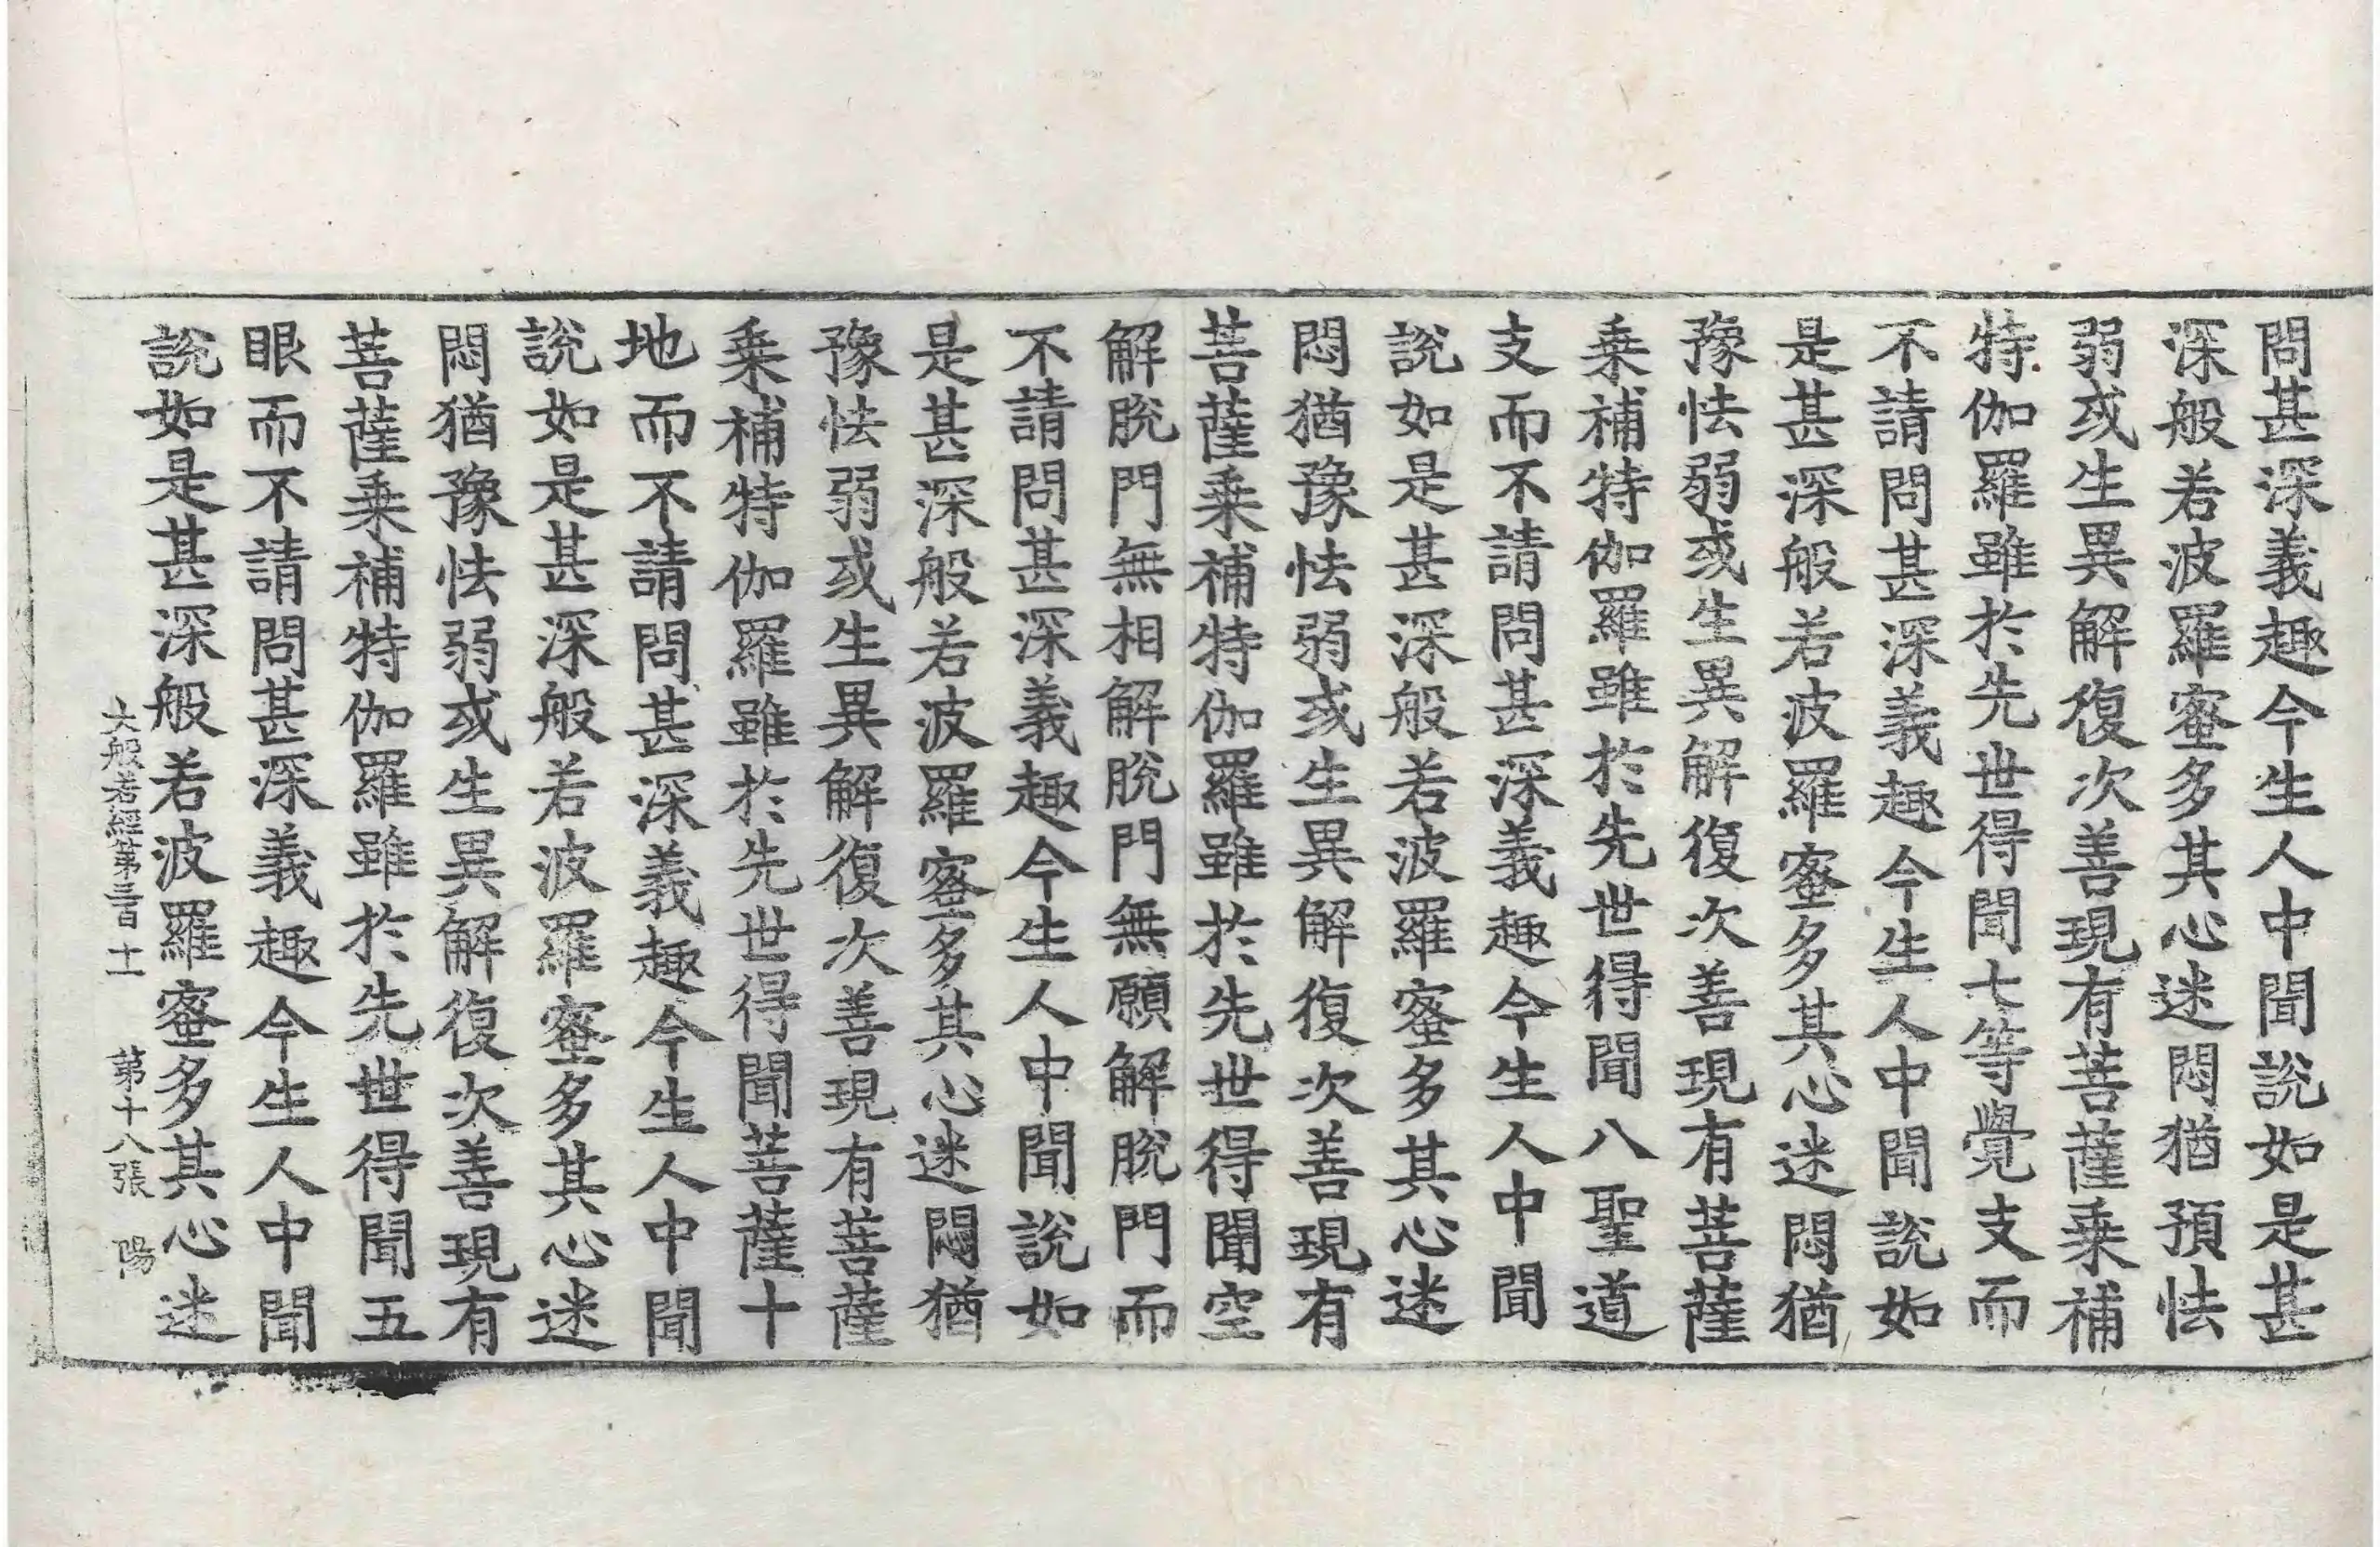 問甚深義趣今生人中聞說如是甚
深般若波羅蜜多其心迷悶猶預怯
弱或生異解復次善現有菩薩乗補
特伽羅雖於先世得聞七等覺支而
不請問甚深義趣今生人中聞說如
是甚深般若波羅蜜多其心迷悶猶
豫怯弱或生異解復次善現有菩薩
乗補特伽羅雖於先世得聞八聖道
支而不請問甚深義趣今生人中聞
說如是甚深般若波羅蜜多其心迷
悶猶豫怯弱或生異解復次善現有
菩薩乗補特伽羅雖於先世得聞空
解脫門無相解脫門無願解脫門而
不請問甚深義趣今生人中聞說如
是甚深般若波羅蜜多其心迷悶猶
豫怯弱或生異解復次善現有菩薩
乗補特伽羅雖於先世得聞菩薩十
地而不請問甚深義趣今生人中聞
說如是甚深般若波羅蜜多其心迷
悶猶豫怯弱或生異解復次善現有
菩薩乗補特伽羅雖於先世得聞五
眼而不請問甚深義趣今生人中聞
說如是甚深般若波羅蜜多其心迷
大般若經第三百十一 第十八張 陽